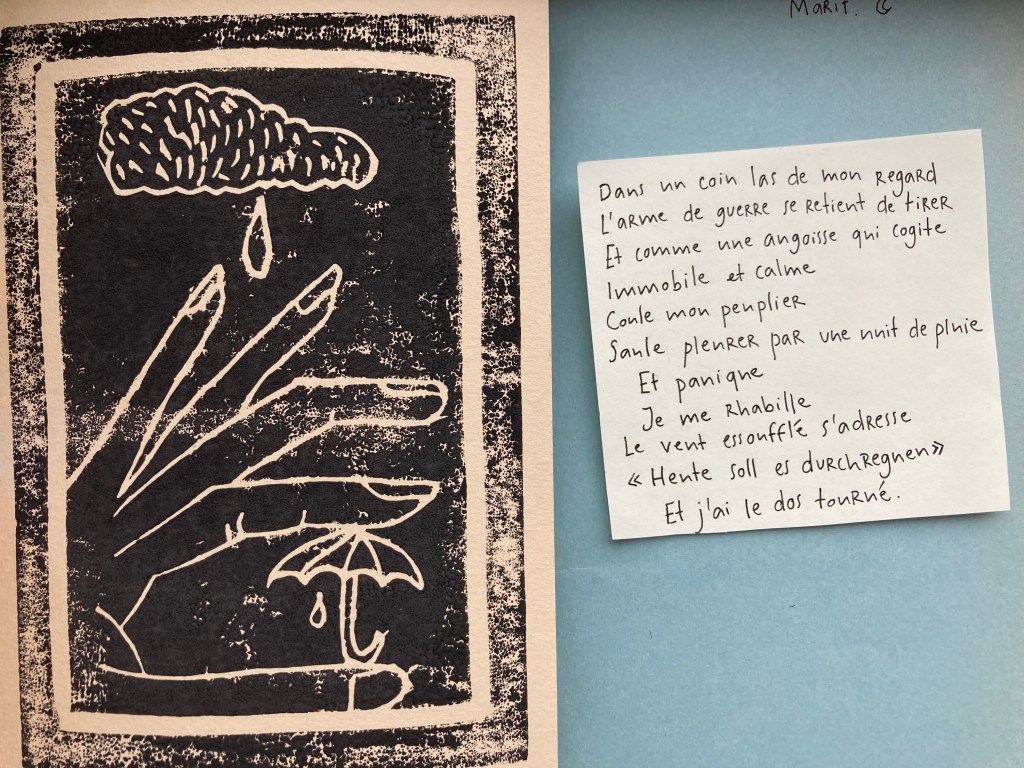 Marit.
Dans un coin las de mon regard
L'arme de guerre se retient de tirer
Et comme une angoisse qui cogite
Immobile et calme
Coule mon peuplier
Saule pleurer par une nuit de pluie
Et panique
Je me rhabille
Le vent essoufflé s'adresse
« Heute soll es durchregnen »
Et j'ai le dos tourné.